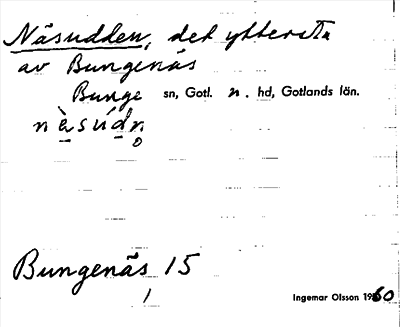 Näsudden, det yttersta
av Bungenäs
Bunge sn, Gotl. n. hd, Gotlands län.
nä̀súdn̥
Bungenäs 15
1
Ingemar Olsson 1960